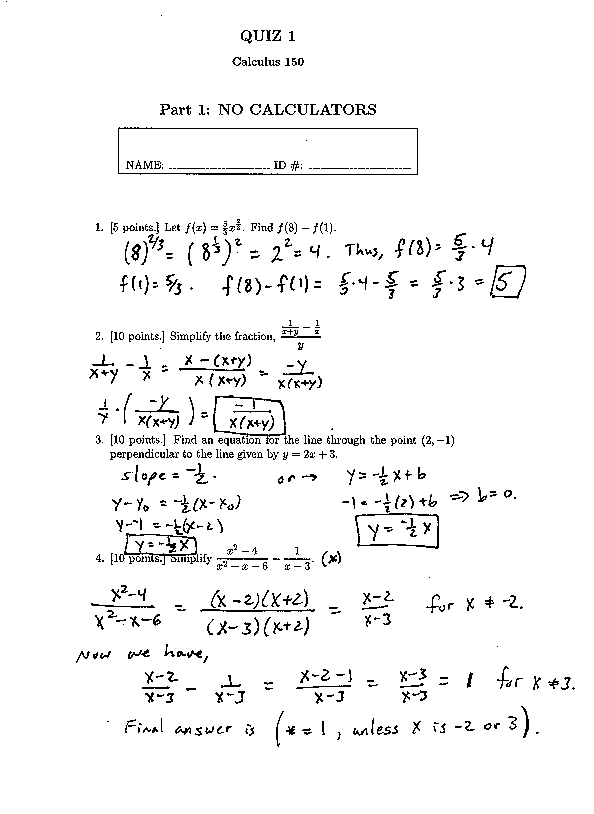 QUIZ 1
Calculus 150
Part 1: NO CALCULATORS
NAME: ____________________ ID #: ____________________
1. [5 points.] Let f(x) = 5/3 x^(2/3). Find f(8) − f(1).
(8)^(2/3) = (8^(1/3))^2 = 2^2 = 4. Thus, f(8) = 5/3 · 4
f(1) = 5/3. f(8) − f(1) = 5/3 · 4 − 5/3 = 5/3 · 3 = 5
2. [10 points.] Simplify the fraction, (1/(x+y) − 1/x)/y
1/(x+y) − 1/x = (x − (x+y))/(x(x+y)) = −y/(x(x+y))
1/y · (−y/(x(x+y))) = −1/(x(x+y))
3. [10 points.] Find an equation for the line through the point (2, −1)
perpendicular to the line given by y = 2x + 3.
slope = −1/2. or → y = −1/2 x + b
y − y₀ = −1/2 (x − x₀) −1 = −1/2 (2) + b ⇒ b = 0.
y − −1 = −1/2 (x − 2) y = −1/2 x
y = −1/2 x
4. [10 points.] Simplify (x² − 4)/(x² − x − 6) − 1/(x − 3). (*)
(x² − 4)/(x² − x − 6) = ((x − 2)(x + 2))/((x − 3)(x + 2)) = (x − 2)/(x − 3) for x ≠ −2.
Now we have,
(x − 2)/(x − 3) − 1/(x − 3) = (x − 2 − 1)/(x − 3) = (x − 3)/(x − 3) = 1 for x ≠ 3.
Final answer is (* = 1, unless x is −2 or 3).